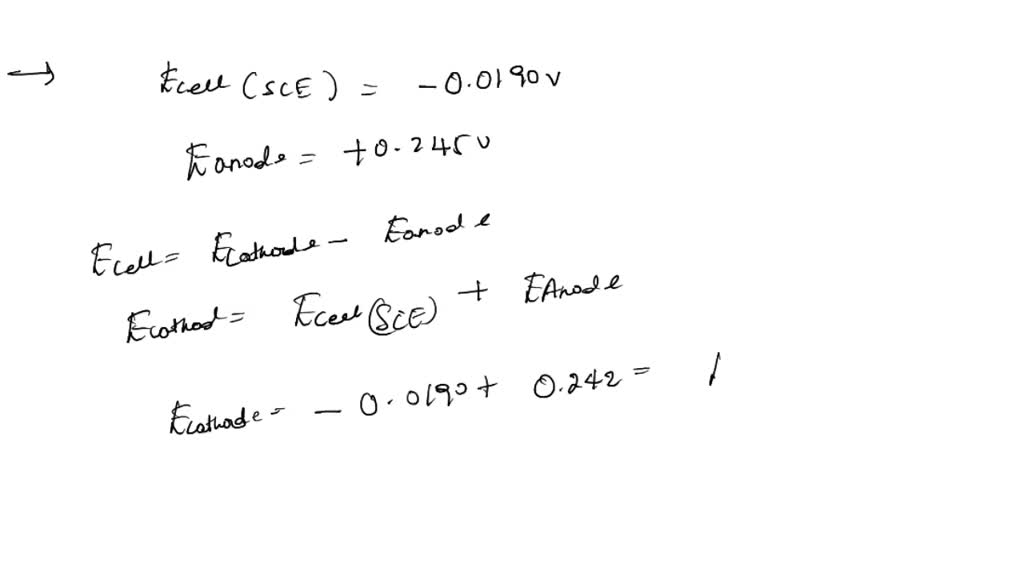 → Ecell (SCE) = -0.0190 v
Eanode = +0.245 v
Ecell = Ecathode - Eanode
Ecathod = Ecell (SCE) + EAnode
Ecathode = - 0.0190 + 0.242 =